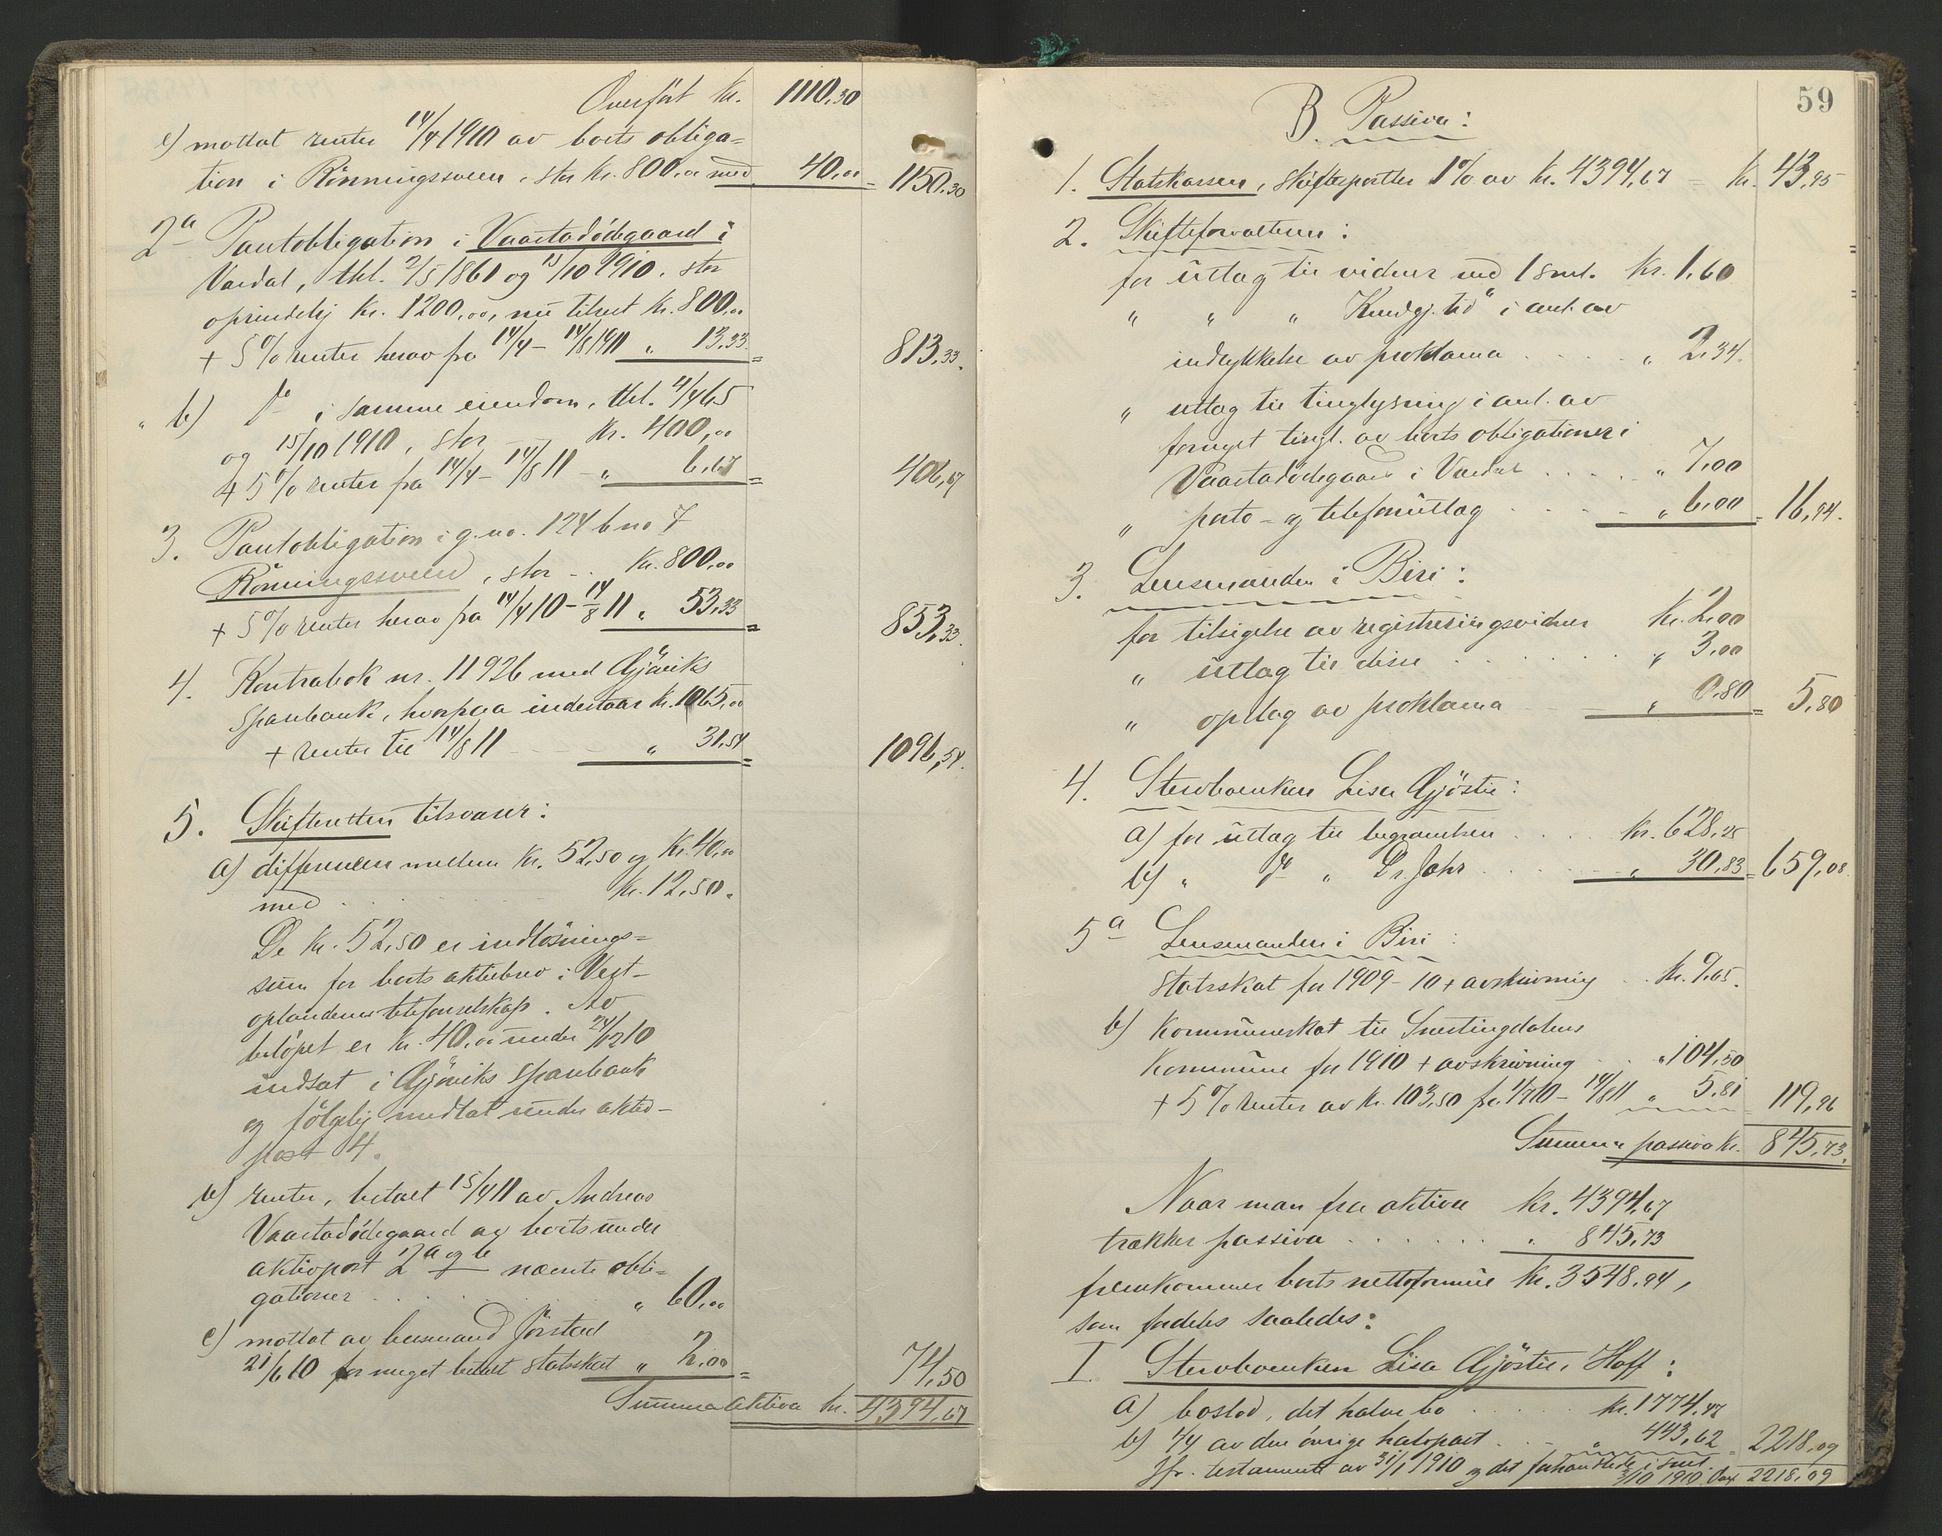 Overført Kr. 1110,30
c) mottat renter 14/4 1910 av boets obliga-
tion i Rønningsveen, stor kr. 800,00 med 40,00 = 1150,30
2a Pantobligation i Vaartadødegaard i
Vardal, thl. 2/5 1861 og 15/10 1910, stor
oprindelig kr. 1200,00, nu tilrest kr. 800,00
+ 5% renter herav fra 14/4 - 14/8 1911 " 13,33 = 813,33.
" b) do i samme eiendom, thl. 4/4 65
og 15/10 1910, stor kr. 400,00
+ 5% renter fra 14/4 - 14/8 11 - " 6,67 = 406,67
3. Pantobligation i g.no. 124 b no 7
Rønningsveen, stor - . Kr. 800,00
+ 5% renter herav fra 14/4 10 - 14/8 11 " 53,33 = 853,33.
4. Kontrabok nr. 11926 med Gjøviks
sparebank, hvorpaa indestaar kr. 1065,00
+ renter til 14/8 11 " 31,54 = 1096,54.
5. Skifteretten tilsvarer:
a) differencen mellem kr. 52,50 og kr. 40,00
med kr. 12,50.
De kr. 52,50 er indløsnings=
sum for boets aktiebrev i Vest-
oplandenes telefonselskap. Av
beløpet er kr. 40,00 under 24/12 10
indsat i Gjøviks sparebank
og følgelig medtat under aktiv-
post 4.
b) renter, betalt 15/4 11 av Andreas
Vaartadødegaard av boets under
aktivpost 2 a og b nævnte obli-
gationer " 60,00
c) mottat av lensmand Jørstad
21/6 10 for meget betalt statsskat " 2,00 = 74,50
Summa aktiva kr. 4394,67
59
B. Passiva:
1. Statskassen, skiftesportler 1% av kr. 4394,67 = kr. 43,95
2. Skifteforvalteren:
for utlæg til vidner ved 1 saml. Kr. 1,60
" " " "Kundgj.tid" i anl. av
indrykkelse av proklama " 2,34.
" utlæg til tinglysning i anl. av
fornyet tingl. av boets obligationer i
Vaartadødegaard i Vardal " 7,00
" porto- og telefonutlæg " 6,00 = 16,94.
3. Lensmanden i Biri:
for tilsigelse av registreringsvidner Kr. 2,00
" utlæg til disse " 3,00
" opslag av proklama " 0,80 = 5,80
4. Stervboenken Lisa Gjøstil:
a) for utlæg til begravelsen kr. 628,25
b) " do " Dr. Johr " 30,83 = 659,08.
5a Lensmanden i Biri:
statsskat for 1909-10 + avskrivning kr. 9,65.
b) kommuneskat til Snertingdalens
kommune for 1910 + avskrivning " 104,50
+ 5% renter av kr. 103,50 fra 1/7 10 - 14/8 11 " 5,81 119,96
Summa passiva kr. 845,73.
Naar man fra aktiva kr. 4394,67
trækker passiva " 845,73
fremkommer boets nettoformue kr. 3548,94,
som fordeles saaledes:
I. Stervboenken Lisa Gjøstil, Hoff:
a) boslod, det halve bo kr. 1774,47
b) 1/4 av den øvrige halvpart " 443,62 = 2218,09
Jfr. testamente av 31/1 1910 og det forhandlede i saml.
3/10 1910. 2218,09